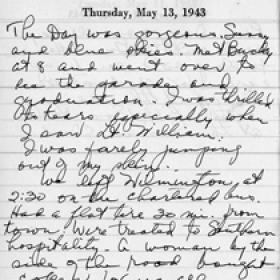 Thursday, May 13, 1943
The Day was gorgeous. Sunny
and blue skies. Met Bucky
at 8 and went over to
see the parade and
graduation. I was thrilled
to tears especially when
I saw Lt. William.
I was farely jumping
out of my skin.
We left Wilmington at
2:30 on the chartered bus.
Had a flat tire 20 min. from
town. Were treated to Southern
hospitality. A woman by the
side of the road bought
cokes for us all